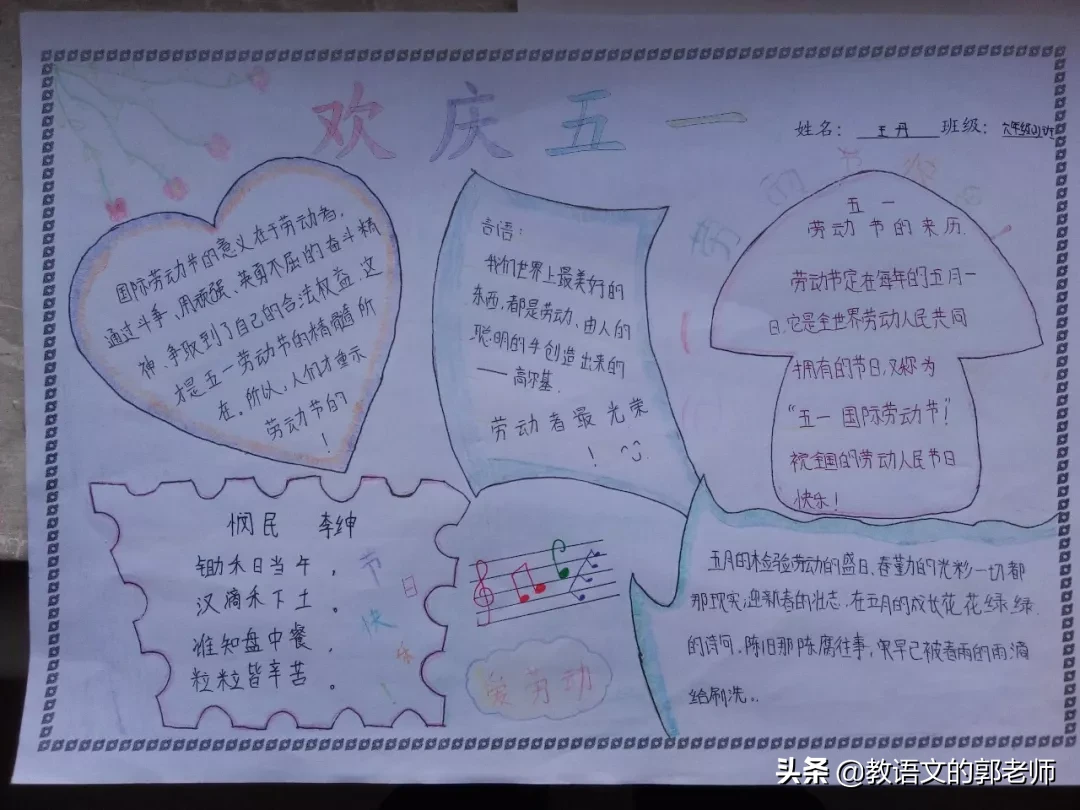 欢庆五一
姓名: 王丹 班级: 六年级
国际劳动节的意义在于劳动者,
通过斗争、用顽强、英勇不屈的奋斗精
神、争取到了自己的合法权益,这
才是五一劳动节的精髓所
在。所以,人们才重示
劳动节的
!
言语:
我们世界上最美好的
东西,都是劳动、由人的
聪明的手创造出来的
——高尔基.
劳动者最光荣
!
五一
劳动节的来历.
劳动节定在每年的五月一
日,它是全世界劳动人民共同
拥有的节日,又称为
“五一国际劳动节”!
祝全国的劳动人民节日
快乐!
悯民 李绅
锄禾日当午,
汉滴禾下土。
谁知盘中餐,
粒粒皆辛苦。
节
日
快
乐
!
爱劳动
五月的检验劳动的盛日、春勤的光彩一切都
那现实,迎新春的壮志,在五月的成长花花绿绿.
的诗问,陈旧那陈腐往事,早已被春雨的雨滴
给刷洗..
头条 @教语文的郭老师